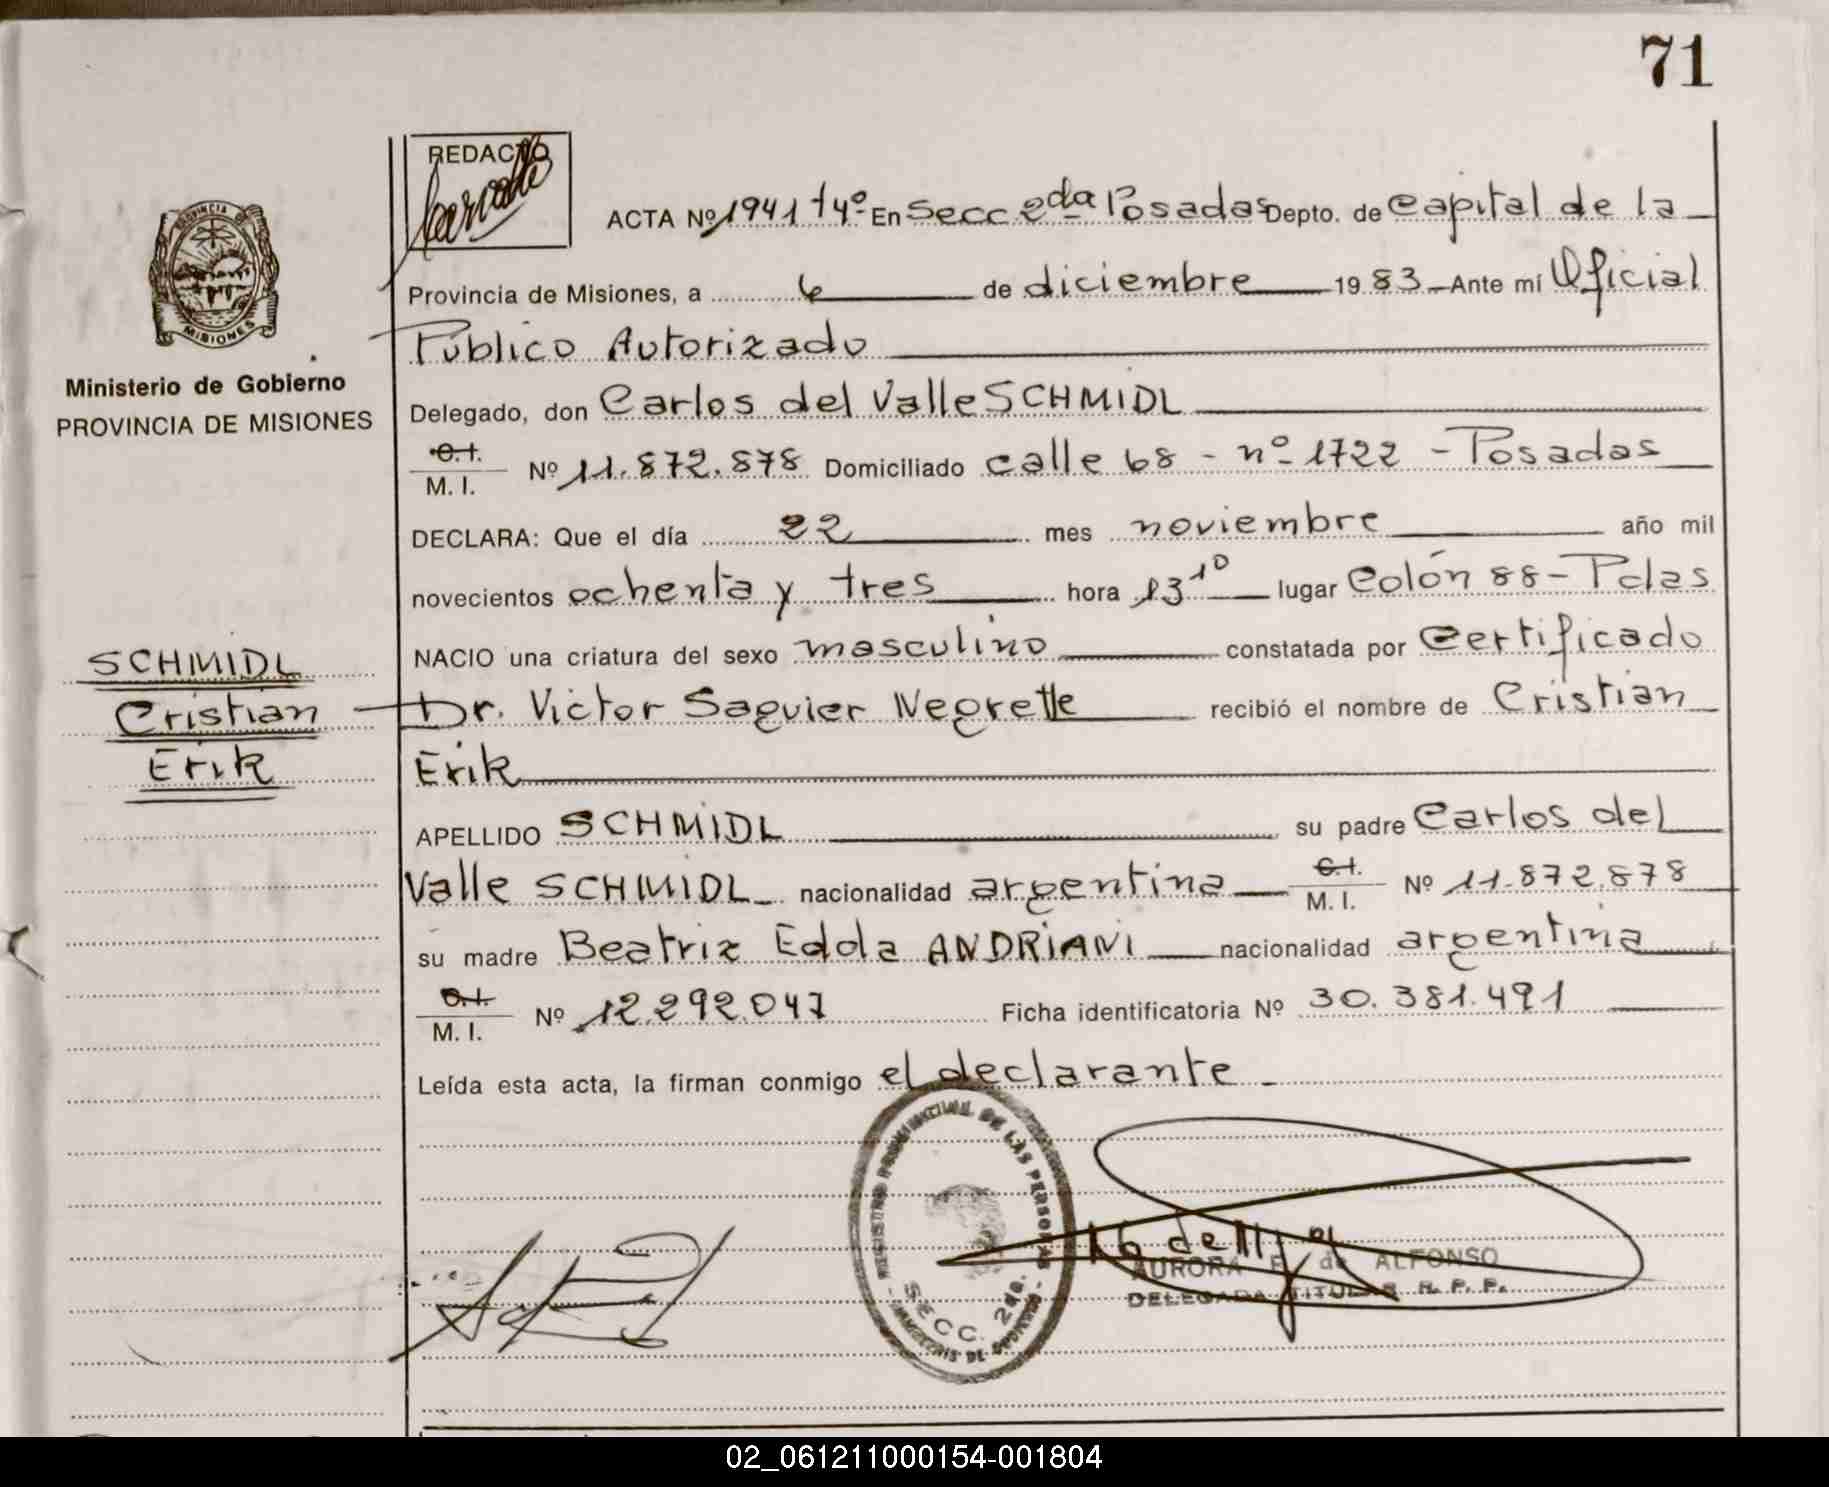 71
REDACTO
ACTA Nº 1941 t4º En Secc 2da Posadas Depto. de Capital de la
PROVINCIA DE
MISIONES
Provincia de Misiones, a 6 de diciembre 1983 Ante mí Oficial
Público Autorizado
Ministerio de Gobierno
PROVINCIA DE MISIONES
Delegado, don Carlos del Valle SCHMIDL
C.I.
M. I. Nº 11.872.878 Domiciliado calle 68 - nº 1722 - Posadas
DECLARA: Que el día 22 mes noviembre año mil
novecientos ochenta y tres hora 13 10 lugar Colón 88 - Pdas
NACIO una criatura del sexo masculino constatada por Certificado
SCHMIDL
Cristian
Erik
Dr. Victor Saguier Negrette recibió el nombre de Cristian
Erik
APELLIDO SCHMIDL su padre Carlos del
Valle SCHMIDL nacionalidad argentina C.I. M. I. Nº 11.872.878
su madre Beatriz Edda ANDRIANI nacionalidad argentina
C.I.
M. I. Nº 12.292.047 Ficha identificatoria Nº 30.381.491
Leída esta acta, la firman conmigo el declarante
REGISTRO PROVINCIAL DE LAS PERSONAS
SECC. 2da.
AURORA F de ALFONSO
DELEGADA TITULAR R. P. P.
02_061211000154-001804